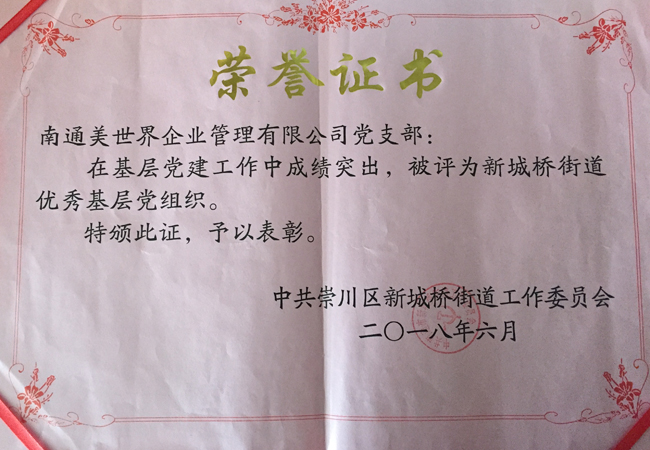 荣誉证书
南通美世界企业管理有限公司党支部：
在基层党建工作中成绩突出，被评为新城桥街道
优秀基层党组织。
特颁此证，予以表彰。
中共崇川区新城桥街道工作委员会
二〇一八年六月